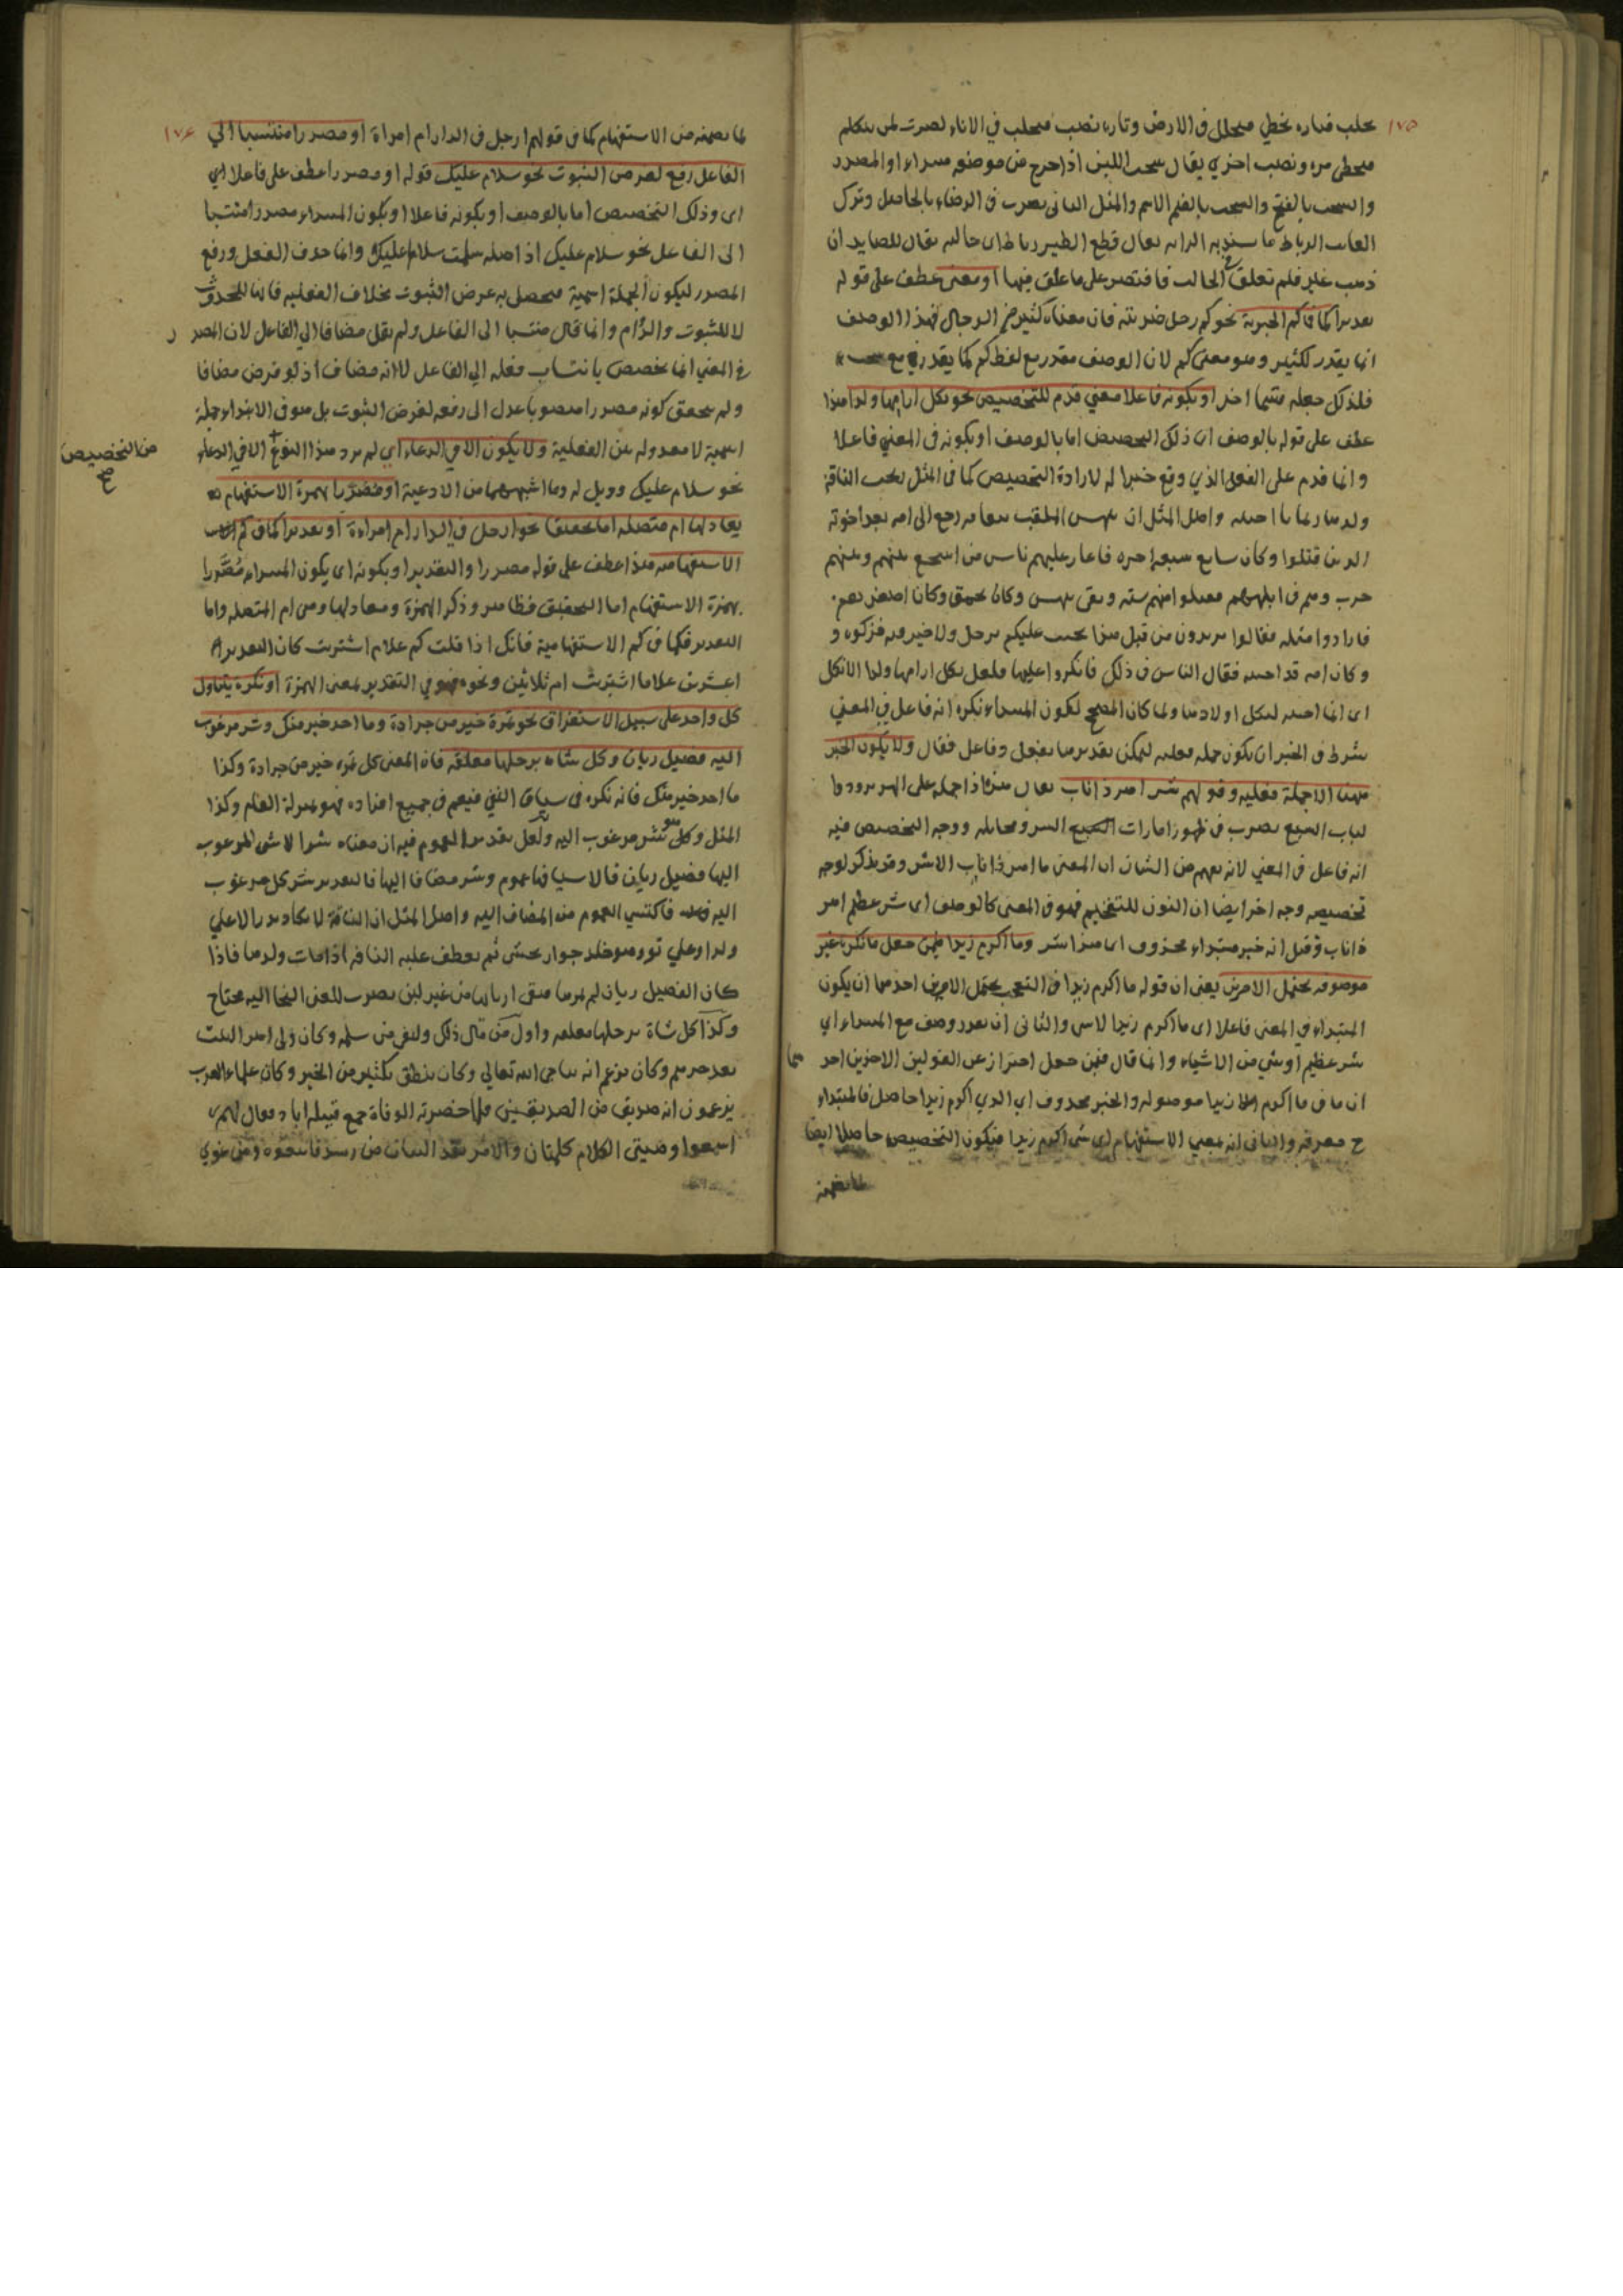 ١٧٥
يحلب فتاره يخطي فيحلب في الارض وتاره نصب فيحلب في الاناء يضرب لمن يتكلم
فيخطى مره ونصب اخري يقال شحب اللبن اذا خرج من موضعه مبتداء او المصدر
والشحب بالفتح والشحب بالضم الاسم والمثل الثانى يضرب في الرضاء بالحاصل وترك
الغائب الرباط ما يشد به الدابه يقال قطع الظبي رباطه اى حباله يقال للصايد ان
ذهب عير فلم تعلق في الحبالة فاقتصر على ما علق فيها او معنى عطف على قوله
تقديرا كما في كم الخبرية نحو كم رجل ضربته فان معناه كثير من الرجال فهذا الوصف
انما يقدر لكثير وهو معنى كم لان الوصف مقدر مع لفظ كم كما يقدر في مع
فلذلك جعله قسما اخر او بكونه فاعلا معني قدم للتخصيص نحو ثكل ارامها ولدا هذا
عطف على قوله بالوصف اى ذلك التخصيص اما بالوصف او بكونه في المعني فاعلا
وانما قدم على الفعل الذي وقع خبرا له لارادة التخصيص كما في المثل يحب الناقة
ولدها واصل المثل ان بيهس الملقب بنعامه رجع الى امه بعد اخوته
الذين قتلوا وكان سابع سبعة اخوه فاغار عليهم ناس من اشجع بينهم وبينهم
حرب وهم في ابلهم فقتلوا منهم سته وبقى بيهس وكان يحمق وكان اصغرهم
فارادوا قتله فقالوا ما يريدون من قتل هذا يحسب عليكم برجل ولا خير فيه فتركوه و
وكان امه قد احبته فقال الناس في ذلك فانكروا عليها فقيل ثكل ارامها ولدا الاثكل
اى انما احبته لثكل اولادها ولما كان المصحح لكون المبتداء نكره انه فاعل في المعني
شرط في الخبر ان يكون جمله فعليه ليمكن تقديرها بفعل وفاعل فقال ولا يكون الخبر
ههنا الا جملة فعليه وقولهم شر اهر ذا ناب يقال هره اذا حمله على الهرير
لباب السبع يضرب في ظهور امارات الشر ومخايله ووجه التخصيص فيه
انه فاعل في المعني لانه يفهم من الشان ان المعنى ما اهر ذا ناب الا شر وقد يذكر لوجه
تخصيصه وجه اخر ايضا ان النون للتفخيم فهو في المعنى كالوصف اى شر عظيم اهر
ذا ناب وقيل انه خبر مبتداء محذوف اى هذا شر وما اكرم زيدا فيمن جعل ما نكره غير
موصوفه يحتمل الامرين يعنى ان قوله ما اكرم زيدا في التعجب يحتمل الامرين احدهما ان يكون
المبتداء في المعنى فاعلا اى ما اكرم زيدا الا شى والثانى ان يقدر وصف مع المبتداء اي
شر عظيم او شي من الاشياء وانما قال فيمن جعل احترازا عن القولين الاخرين احد
هما
ان ما في ما اكرم زيدا موصوله والخبر محذوف اي الذي اكرم زيدا حاصل فالمبتداء
ح معرفه والثانى انه بمعني الاستفهام اى شى اكرم زيدا فيكون التخصيص حاصلا ايضا
لما تضمنه
١٧٦
لما تضمنه من الاستفهام كما في قولهم ارجل في الدار ام امراة او مصدرا منتسبا الي
الفاعل رفع لغرض الثبوت نحو سلام عليك قوله او مصدرا عطف على فاعلا اي
اى وذلك التخصيص اما بالوصف او بكونه فاعلا او بكون المبتداء مصدرا منتسبا
الى الفاعل نحو سلام عليك اذ اصله سلمت سلاما عليك وانما حذف الفعل ورفع
المصدر ليكون الجملة اسمية فيحصل به غرض الثبوت بخلاف الفعليه فانها للحدوث
لا للثبوت والدوام وانما قال منتسبا الى الفاعل ولم يقل مضافا الي الفاعل لان المصدر
في المعني انما تخصص بانتساب فعله الي الفاعل لا انه مضاف اذ لو فرض مضافا
ولم يتحقق كونه مصدرا منصوبا عدل الى رفعه لغرض الثبوت بل هو في الابتداء جملة
اسمية لا معدوله عن الفعلية ولا يكون الا في الدعاء اي لم يرد هذا النوع الا في الدعاء
من التخصيص
صح
نحو سلام عليك وويل له وما اشبههما من الادعية او مصدرا بهمزة الاستفهام
يعادلها ام متصله اما تحقيقا نحو ارجل في الدار ام امراة او تقديرا كما في كم
الاستفهاميه هذا عطف على قوله مصدرا والتقدير او بكونه اى يكون المبتداء مصدرا
بهمزة الاستفهام اما التحقيق فظاهر وذكر الهمزة ومعادلها وهى ام المتصله واما
التقدير فكما في كم الاستفهامية فانك اذا قلت كم غلاما اشتريت كان التقدير
اعشرين غلاما اشتريت ام ثلاثين ونحوه فهو في التقدير بمعنى الهمزة او نكره يتناول
كل واحد على سبيل الاستغراق نحو تمرة خير من جرادة وما احد خير منك وشر مرغوب
اليه فصيل ريان وكل شاه برجلها معلقه فان المعنى كل تمره خير من جرادة وكذا
ما احد خير منك فانه نكره في سياق النفي فيعم في جميع افراده فهو بمنزلة العام وكذا
المثل وكل هو شر مرغوب اليه ولعل تقدير العموم فيه ان معناه شر الاشيا المرغوب
اليها فصيل ريان فالاشيا فيها عموم وشر مضاف اليها فالتقدير شر كل مرغوب
اليه فاكتسي العموم من المضاف اليه واصل المثل ان الناقة لا تكاد تدر الا علي
ولد او علي بو وهو جلد حوار يحشى ثم يعطف عليه الناقه اذا مات ولدها فاذا
كان الفصيل ريان لم يمرها فبقى اربابها من غير لبن يضرب للغنى التجا اليه محتاج
وكذا كل شاة برجلها معلقه واول من قال ذلك وكيع بن سلمه وكان ولى امر البيت
بعد جرهم وكان يزعم انه يناجى الله تعالي وكان ينطق بكثير من الخير وكان علماء العرب
يزعمون انه صديق من الصديقين فلما حضرته الوفاة جمع قبيله اياد فقال لهم
اسمعوا وصيتى الكلام كلمتان والامر بعد البيان من رشد فاتبعوه ومن غوي